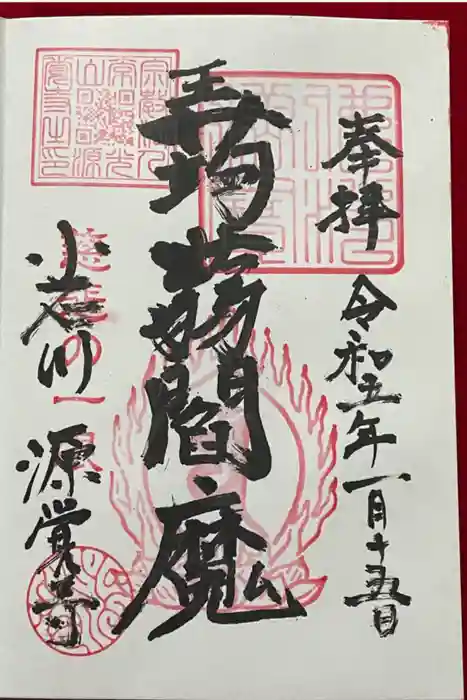 奉拝
令和五年一月十五日
蒟蒻閻魔
小石川
源覚寺